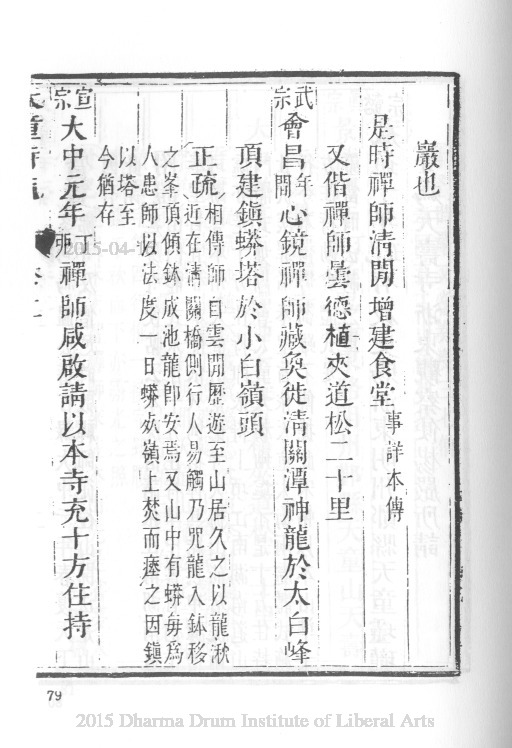 巖也
是時禪師清閒增建食堂事詳本傳
又偕禪師曇德植夾道松二十里
武宗會昌年間心鏡禪師藏奐徙清關潭神龍於太白峰
頂建鎮蟒塔於小白嶺頭
正疏相傳師自雲間歷遊至山居久之以龍湫
近在清關橋側行人易觸乃咒龍入鉢移
之峯頂傾鉢成池龍卽安焉又山中有蟒每為
人患師以法度一日蟒於嶺上焚而瘞之因鎮
以塔至
今猶存
宣宗大中元年丁卯禪師咸啟請以本寺充十方住持
79
2015-04-
2015 Dharma Drum Institute of Liberal Arts